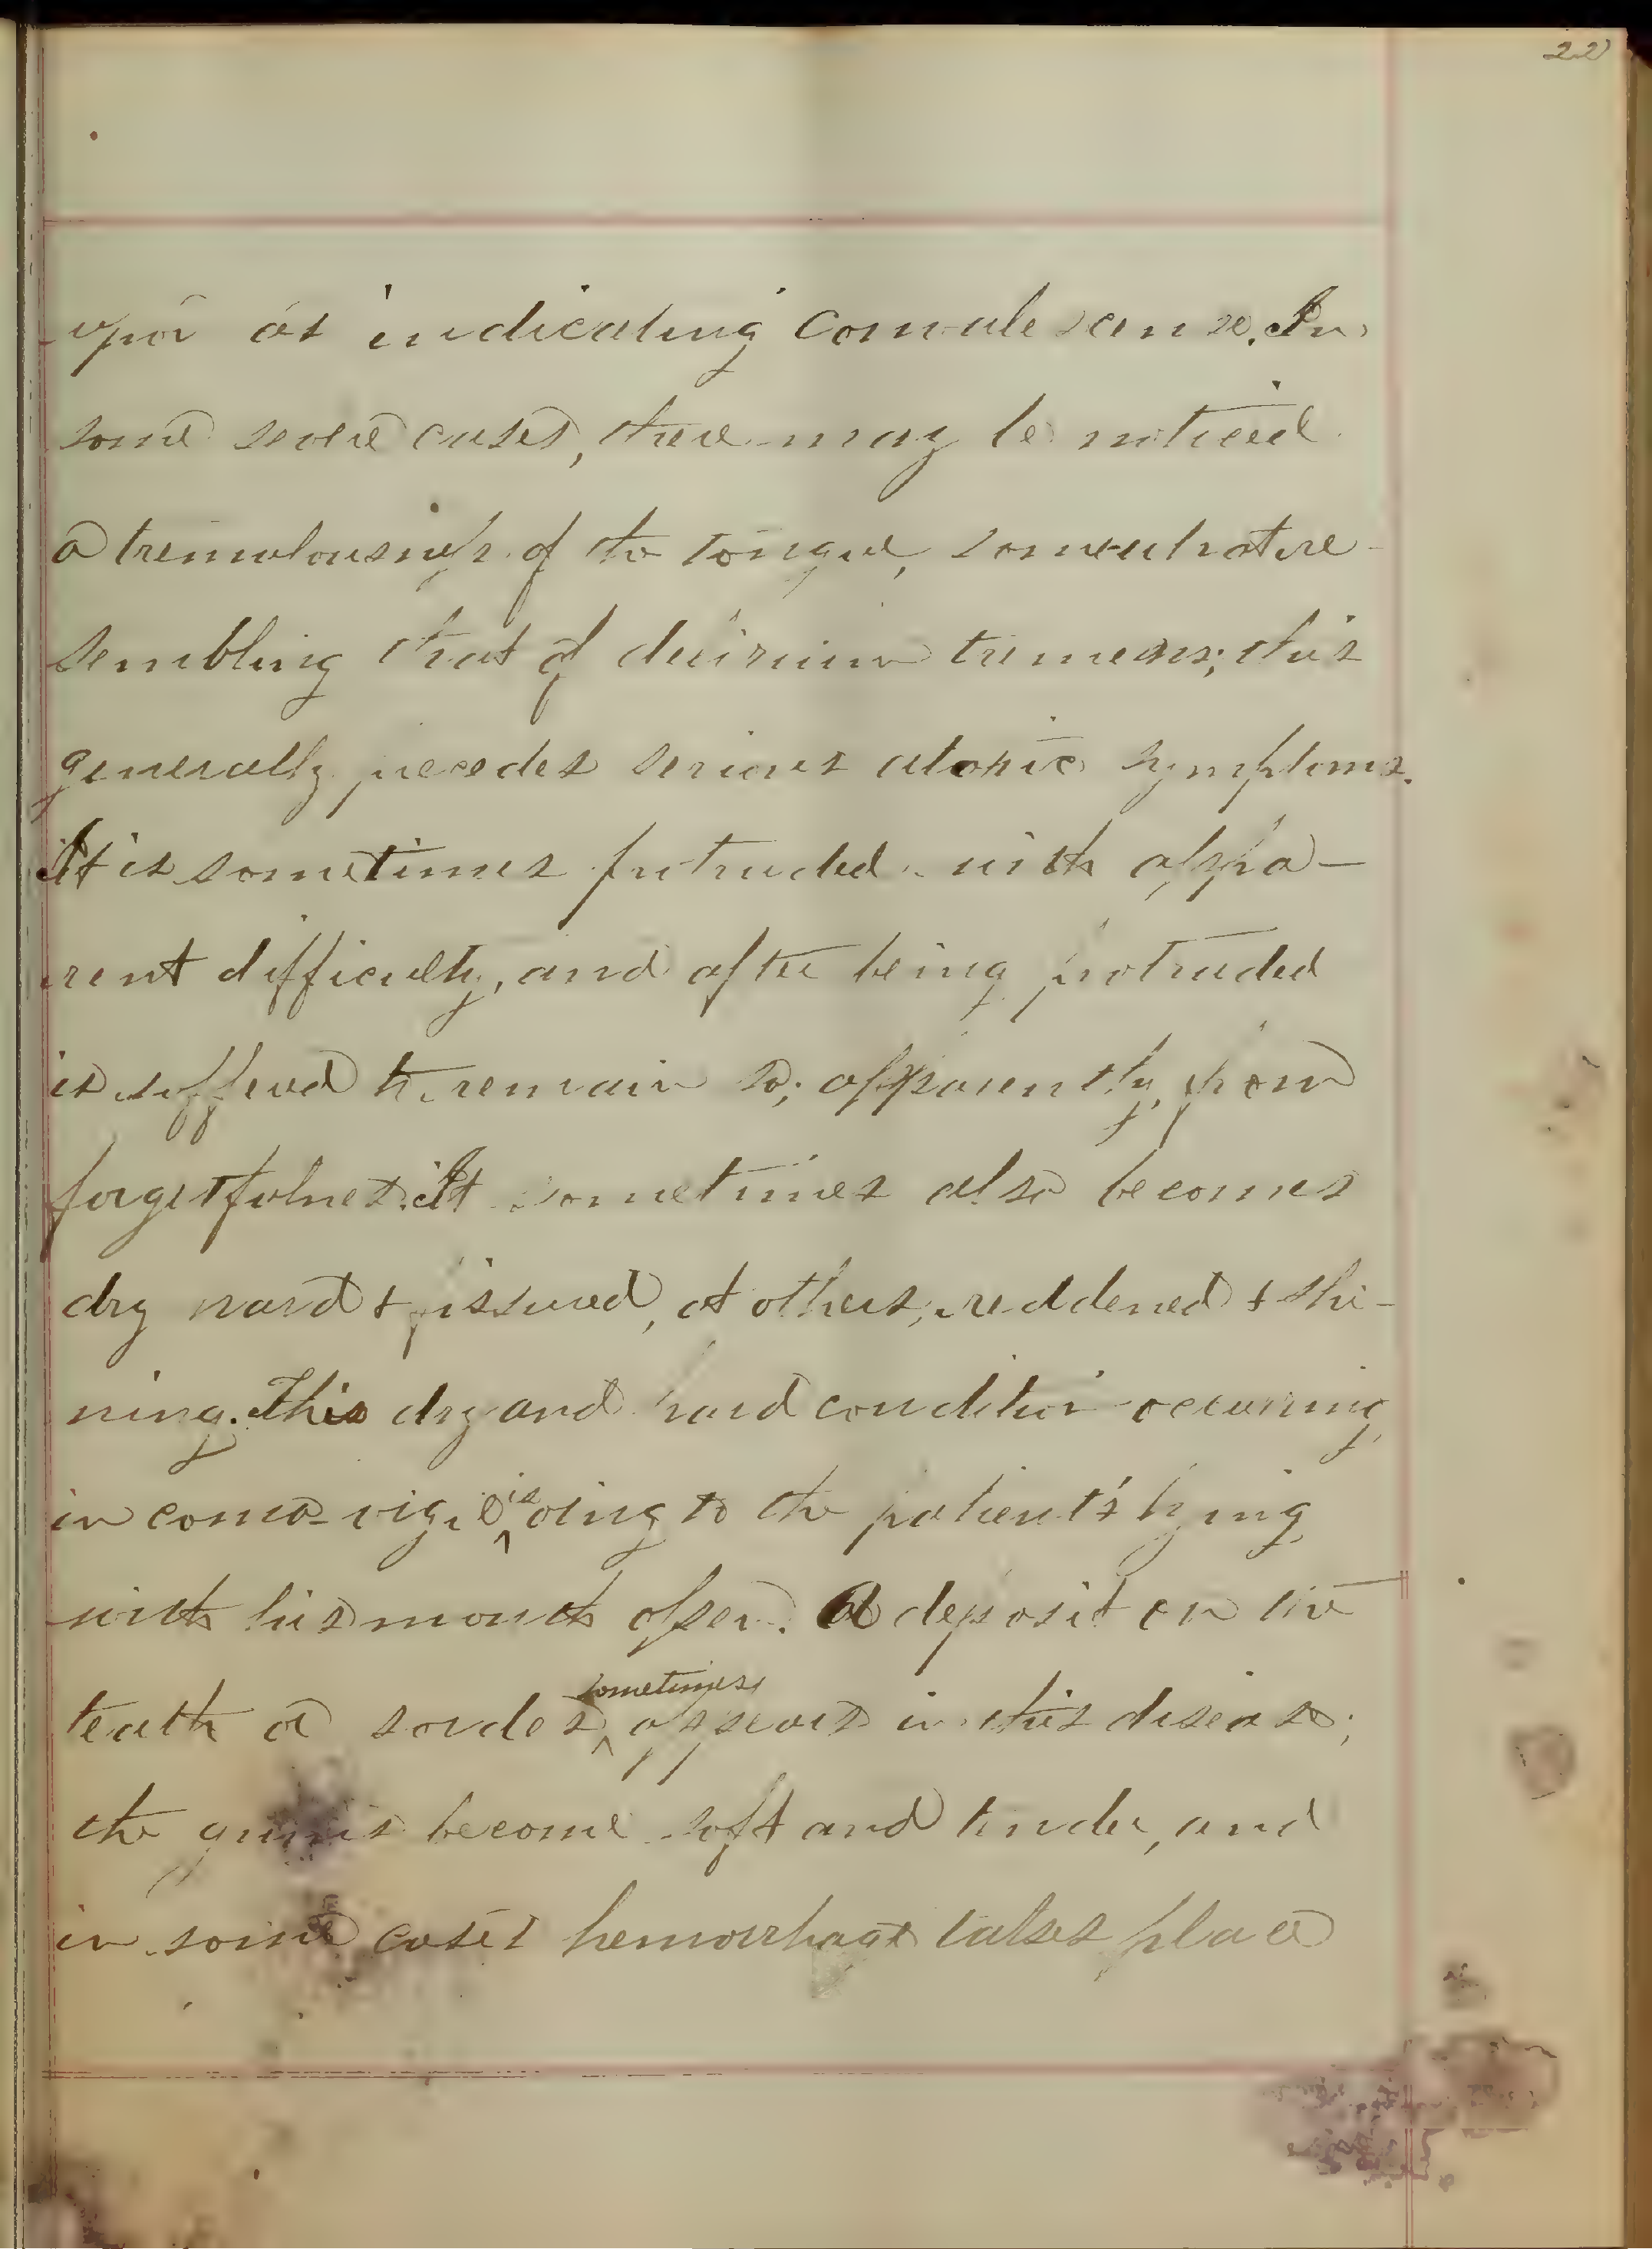 22
upon as indicating convalescense. In
some severe cases, there may be noticed
a tremulousness of the tongue, somewhat re-
sembling that of delirium tremens; this
generally precedes serious atonic symptoms.
It is sometimes protruded with appa-
rent difficulty, and after being protruded
is suffered to remain so; apparently, from
forgetfulnes. It sometimes also becomes
dry hard & fissured, at others, reddened & shi-
ning. This dry and hard condition occurring
in coma-vigil is oing to the patient's lying
with his mouth open. A deposit on the
teath or sordes sometimes appears in this disease;
the gums become soft and tender, and
in some cases hemorrhage takes place